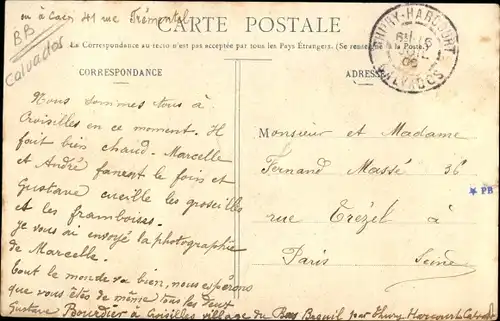 en à Caen 41 rue Frémentel
BB
Calvados
CARTE POSTALE
La Correspondance au recto n'est pas acceptée par tous les Pays Étrangers. (Se renseigner à la Poste.)
THURY-HARCOURT
CALVADOS
CORRESPONDANCE
ADRESSE
Nous sommes tous à
Croisilles en ce moment. Il
fait bien chaud. Marcelle
et André fanent le foin et
Gustave cueille les groseilles
et les framboises.
je vous ai envoyé la photographie
de Marcelle.
tout le monde va bien, nous espérons
que vous êtes de même tous les deux
Gustave Bourdier à Croisilles village du Bas Breuil par Thury Harcourt Calvados
Monsieur et Madame
Fernand Massé 36
rue Trézel à
Paris
Seine
* PB